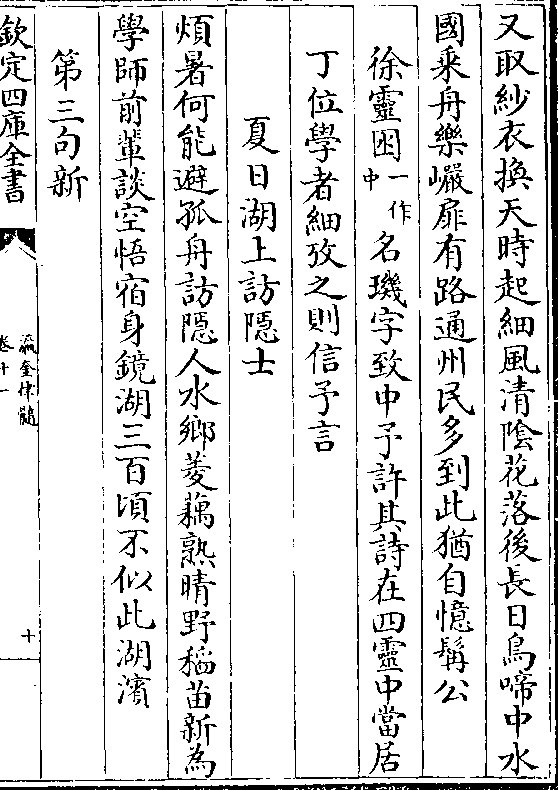 又取紗衣換天時起細風清陰花落後長日鳥啼中水
國乘舟樂巖扉有路通州民多到此猶自憶髯公
徐靈困一作中名璣字致中予許其詩在四靈中當居
丁位學者細攷之則信予言
夏日湖上訪隠士
煩暑何能避孤舟訪隠人水鄉菱藕熟晴野稲苗新為
學師前輩談空悟宿身鏡湖三百頃不似此湖濱
第三句新
欽定四庫全書
瀛奎律髓
卷十一
十